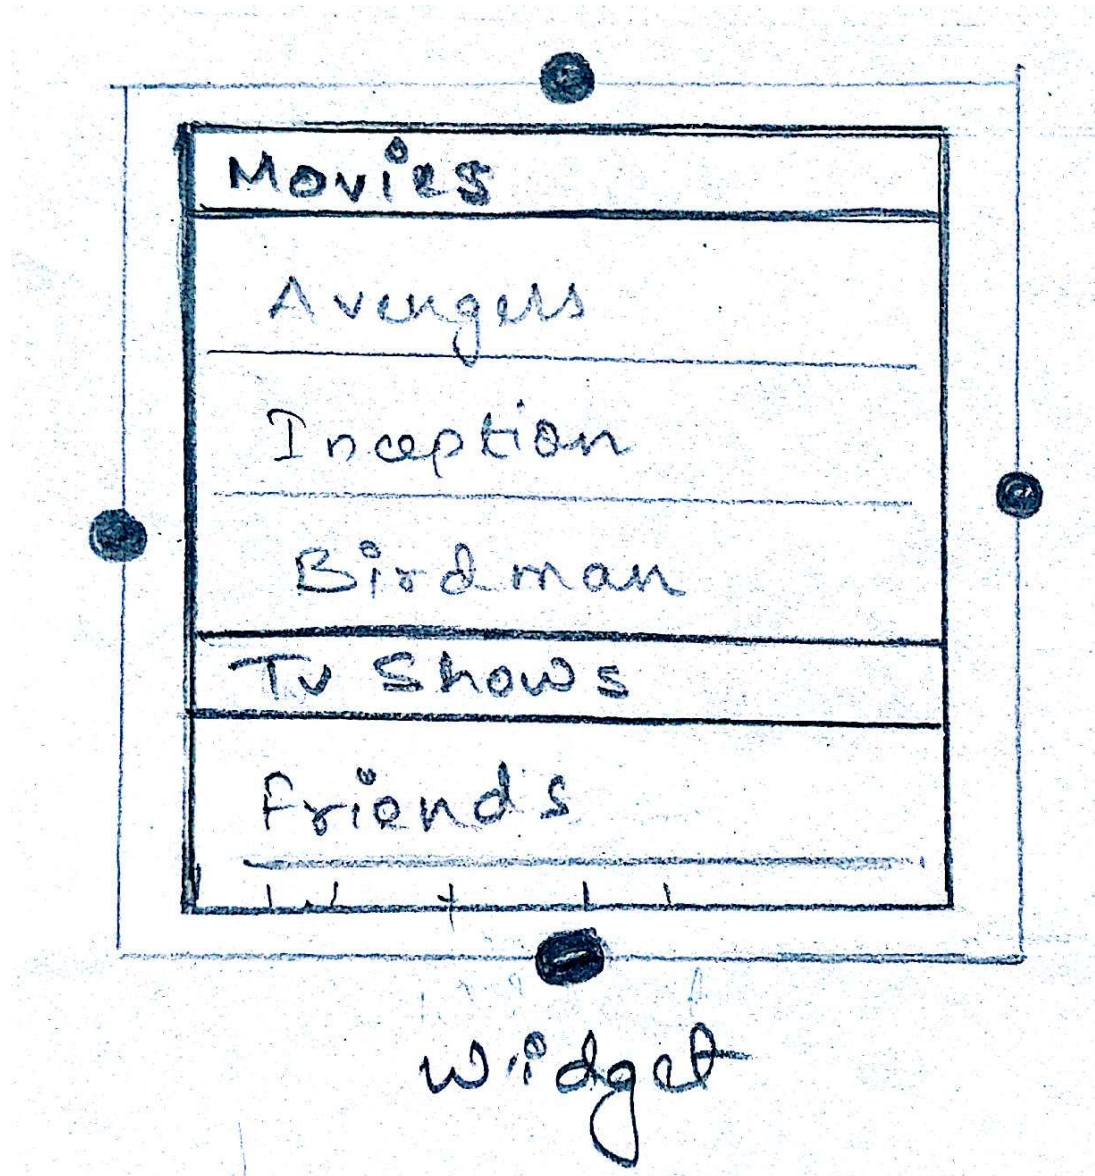 Movies
Avengers
Inception
Birdman
Tv Shows
Friends
Widget